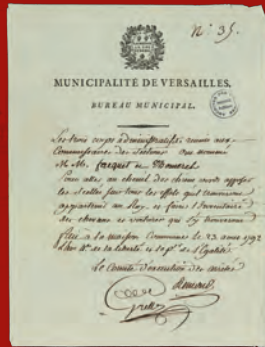 N.º 35.
MUNICIPALITÉ DE VERSAILLES,
BUREAU MUNICIPAL.
Les trois corps administratifs reunis aux
Commissaires des Sections ont nommé
M M. Jacquet et
Pour aller au chenil des chiens verds apposer
les scellés sur tous les effets qui
appartenir au Roy, et faire l'Inventaire
des chevaux et voitures qui s'y trouveront
fait à la maison Commune le 23 aout 1792
l'an 4e de la liberté et le 1er de l'Egalité.
Le Comité d'execution des arrêtés